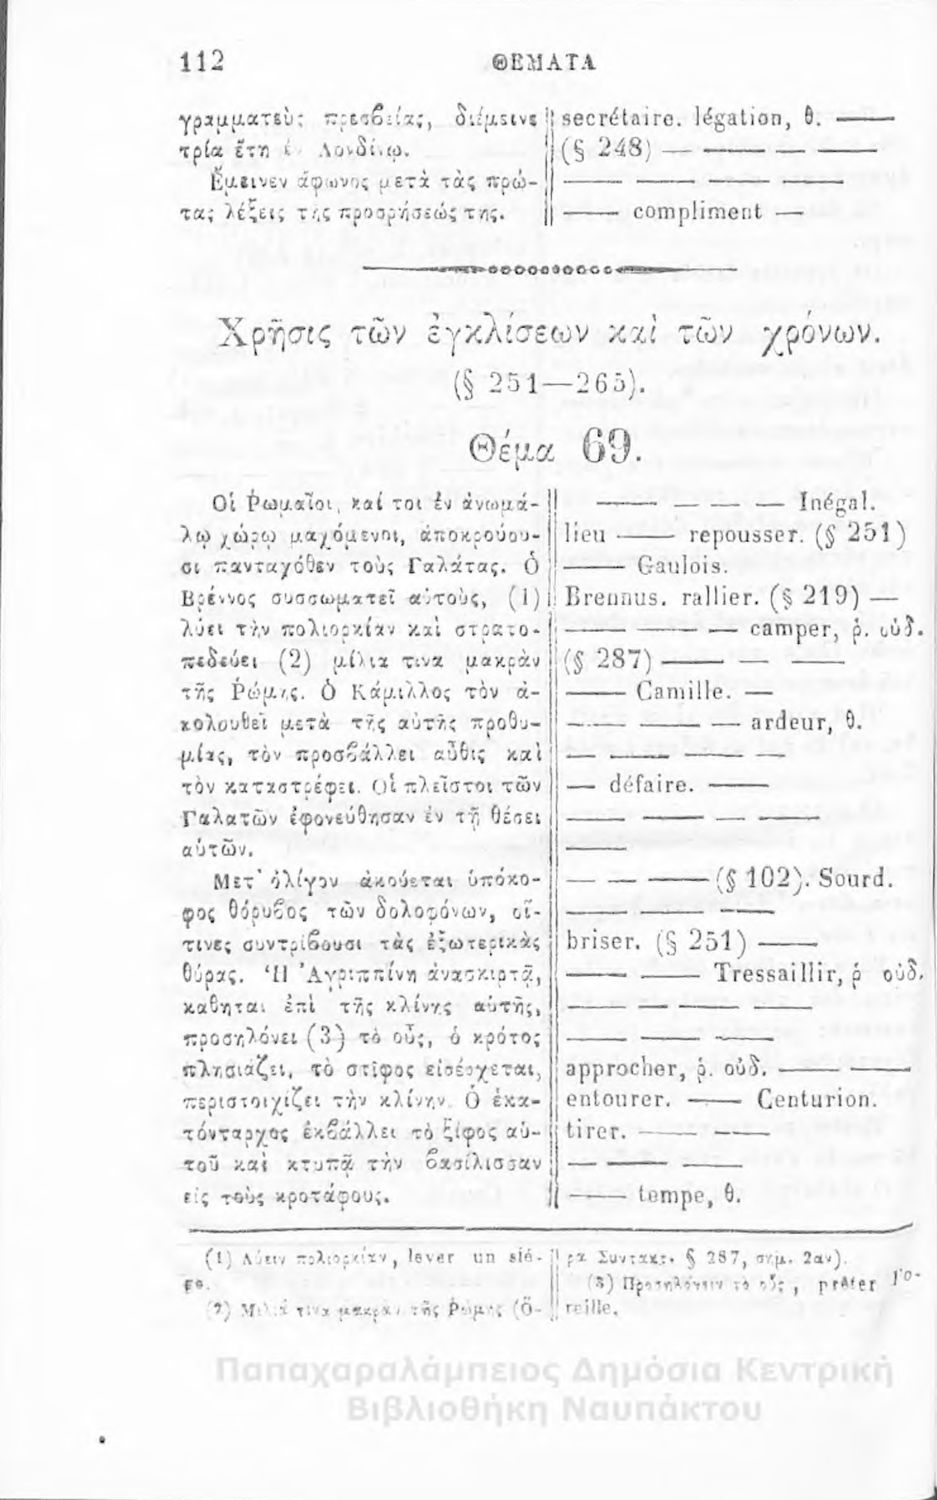 112 ΘΕΜΑΤΑ
γραμματεὺς πρεσβείας, διέμεινε
τρία ἔτη ἐν Λονδίνῳ.
Ἔμεινεν ἄφωνος μετὰ τὰς πρώ-
τας λέξεις τῆς προσρήσεώς της.
secrétaire. légation, θ. ——
(§ 248) — —— — —
—— —— ——
—— compliment —
Χρῆσις τῶν ἐγκλίσεων καὶ τῶν χρόνων.
(§ 251—265).
Θέμα 69.
Οἱ Ῥωμαῖοι, καί τοι ἐν ἀνωμά-
λῳ χώρῳ μαχόμενοι, ἀποκρούου-
σι πανταχόθεν τοὺς Γαλάτας. Ὁ
Βρέννος συσσωματεῖ αὐτοὺς, (1)
λύει τὴν πολιορκίαν καὶ στρατο-
πεδεύει (2) μίλια τινα μακρὰν
τῆς Ῥώμης. Ὁ Κάμιλλος τὸν ἀ-
κολουθεῖ μετὰ τῆς αὐτῆς προθυ-
μίας, τὸν προσβάλλει αὖθις καὶ
τὸν καταστρέφει. Οἱ πλεῖστοι τῶν
Γαλατῶν ἐφονεύθησαν ἐν τῇ θέσει
αὐτῶν.
Μετ' ὀλίγον ἀκούεται ὑπόκω-
φος θόρυβος τῶν δολοφόνων, οἵ-
τινες συντρίβουσι τὰς ἐξωτερικὰς
θύρας. Ἡ Ἀγριππίνη ἀνασκιρτᾷ,
καθηται ἐπὶ τῆς κλίνης αὐτῆς,
προσηλόνει (3) τὸ οὖς, ὁ κρότος
πλησιάζει, τὸ στῖφος εἰσέρχεται,
περιστοιχίζει τὴν κλίνην. Ὁ ἑκα-
τόνταρχος ἐκβάλλει τὸ ξίφος αὐ-
τοῦ καὶ κτυπᾷ τὴν βασίλισσαν
εἰς τοὺς κροτάφους.
—— — — — Inégal.
lieu —— repousser. (§ 251)
—— Gaulois.
Brennus. rallier. (§ 219) —
—— —— — camper, ῥ. οὐδ.
(§ 287) —— — ——
—— Camille. —
— —— —— — ardeur, θ.
— —— —— —
— défaire. ——
— —— — ——
——
— — ——(§ 102). Sourd.
— —— ——
briser. (§ 251) ——
—— —— Tressaillir, ῥ οὐδ.
— —— — ——
—— — ——
approcher, ῥ. οὐδ. —— ——
entourer. —— Centurion.
tirer. —— ——
— —— ——
—— tempe, θ.
(1) Λύειν πολιορκίαν, lever un sié-
ge.
(2) Μίλιά τινα μακρὰν τῆς Ῥώμης (ὅ-
ρα Συντακτ. § 287, σημ. 2αν).
(3) Προσηλόνειν τὸ οὖς, prêter l'o-
reille.
Παπαχαραλάμπειος Δημόσια Κεντρική
Βιβλιοθήκη Ναυπάκτου